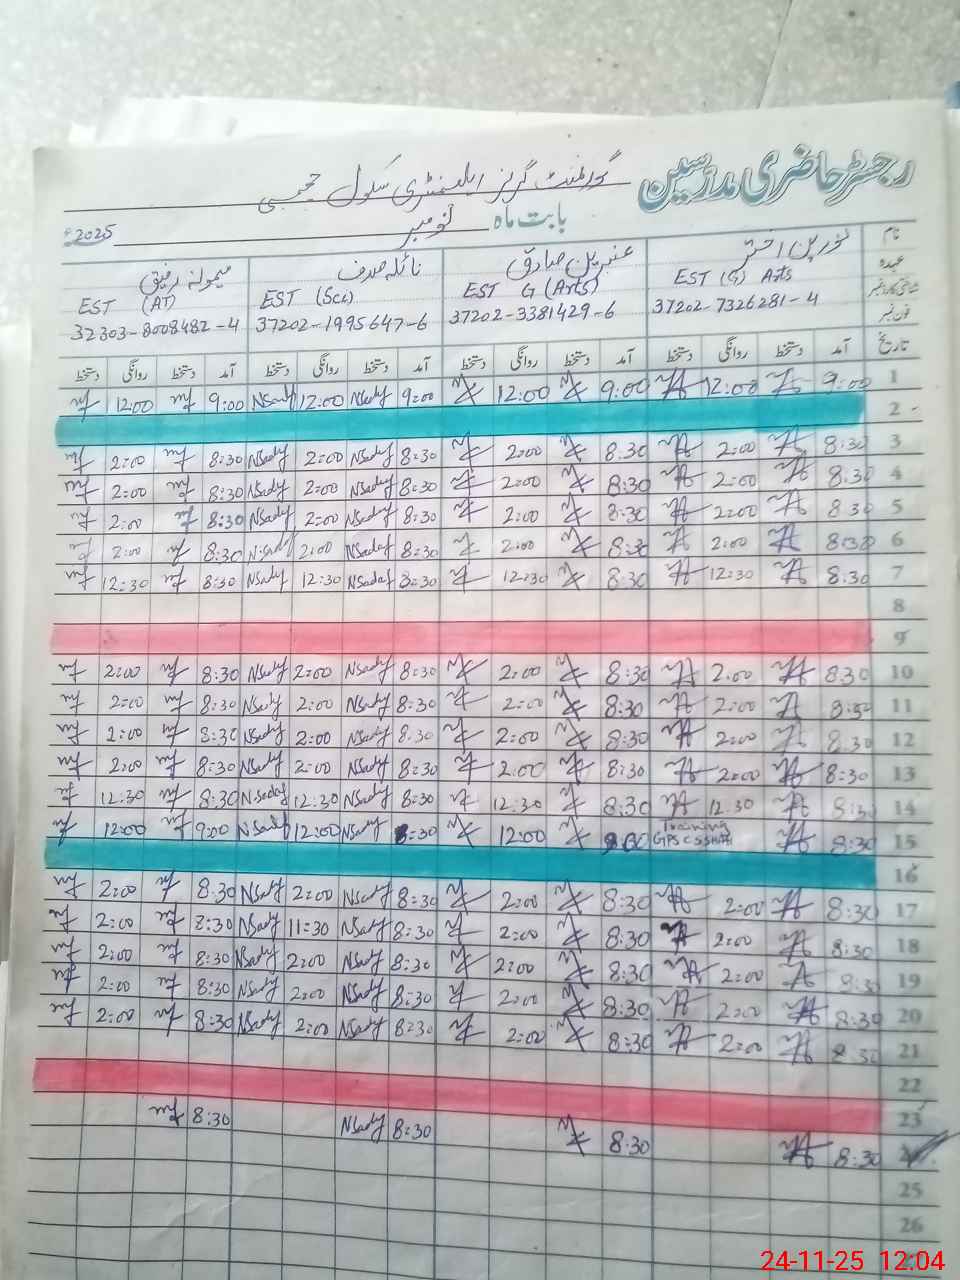 رجسٹر حاضری مدرسین
گورنمنٹ گرلز ایلیمنٹری سکول
بابت ماہ نومبر 2025ء
نام نورین اختر عنبرین صادق نائلہ صدف میمونہ رفیق
عہدہ EST (G) Arts EST G (Arts) EST (Sci) EST (AT)
شناختی کارڈ نمبر 37202-7326281-4 37202-3381429-6 37202-1995647-6 32303-8008482-4
فون نمبر
تاریخ آمد دستخط روانگی دستخط آمد دستخط روانگی دستخط آمد دستخط روانگی دستخط آمد دستخط روانگی دستخط
1 9:00 12:00 9:00 12:00 9:00 NSadf 12:00 NSadf 9:00 12:00
2
3 8:30 2:00 8:30 2:00 8:30 NSadf 2:00 NSadf 8:30 2:00
4 8:30 2:00 8:30 2:00 8:30 NSadf 2:00 NSadf 8:30 2:00
5 8:30 2:00 8:30 2:00 8:30 NSadf 2:00 NSadf 8:30 2:00
6 8:30 2:00 8:30 2:00 8:30 NSadaf 2:00 NSadaf 8:30 2:00
7 8:30 12:30 8:30 12:30 8:30 NSadaf 12:30 NSadf 8:30 12:30
8
9
10 8:30 2:00 8:30 2:00 8:30 NSadf 2:00 NSadf 8:30 2:00
11 8:30 2:00 8:30 2:00 8:30 NSadf 2:00 NSadf 8:30 2:00
12 8:30 2:00 8:30 2:00 8:30 NSadf 2:00 NSadf 8:30 2:00
13 8:30 2:00 8:30 2:00 8:30 NSadf 2:00 NSadf 8:30 2:00
14 8:30 12:30 8:30 12:30 8:30 NSadf 12:30 NSadaf 8:30 12:30
15 8:30 Training GPS C S Shah 12:00 8:30 NSadf 12:00 NSadf 9:00 12:00
16
17 8:30 2:00 8:30 2:00 8:30 NSadf 2:00 NSadf 8:30 2:00
18 8:30 2:00 8:30 2:00 8:30 NSadf 11:30 NSadf 8:30 2:00
19 8:30 2:00 8:30 2:00 8:30 NSadf 2:00 NSadf 8:30 2:00
20 8:30 2:00 8:30 2:00 8:30 NSadf 2:00 NSadf 8:30 2:00
21 8:30 2:00 8:30 2:00 8:30 NSadf 2:00 NSadf 8:30 2:00
22
23
8:30 8:30 8:30 NSadf 8:30
25
26
24-11-25 12.04